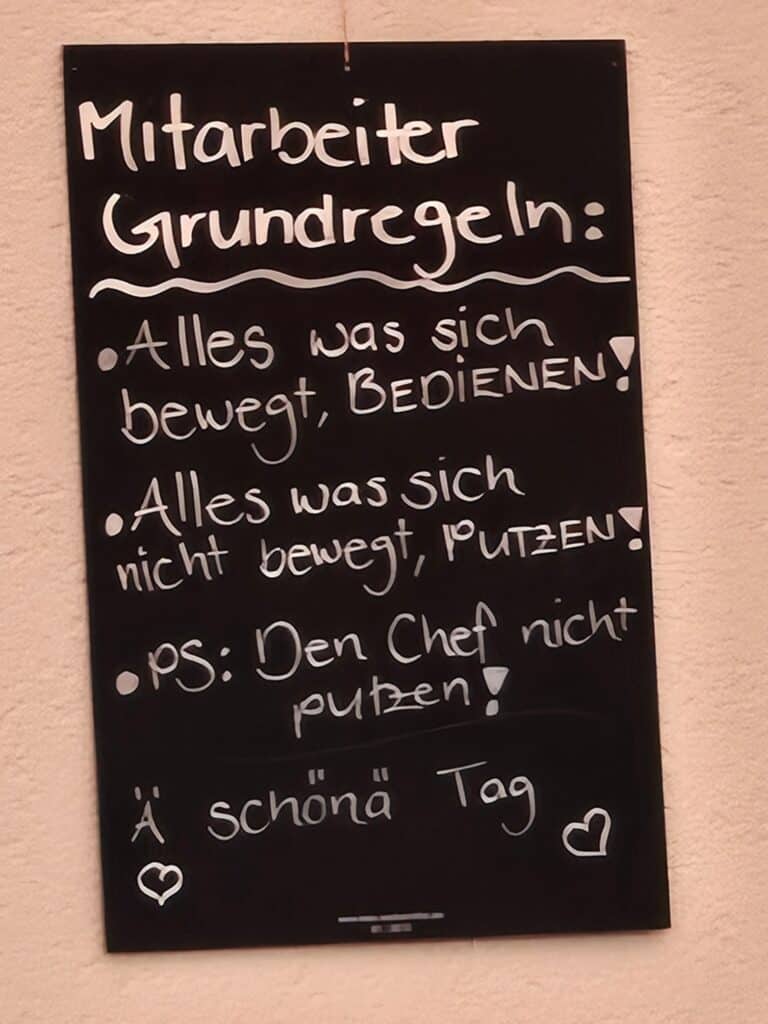 Mitarbeiter
Grundregeln:
• Alles was sich
bewegt, BEDIENEN!
• Alles was sich
nicht bewegt, PUTZEN!
• PS: Den Chef nicht
putzen!
Ä schönä Tag